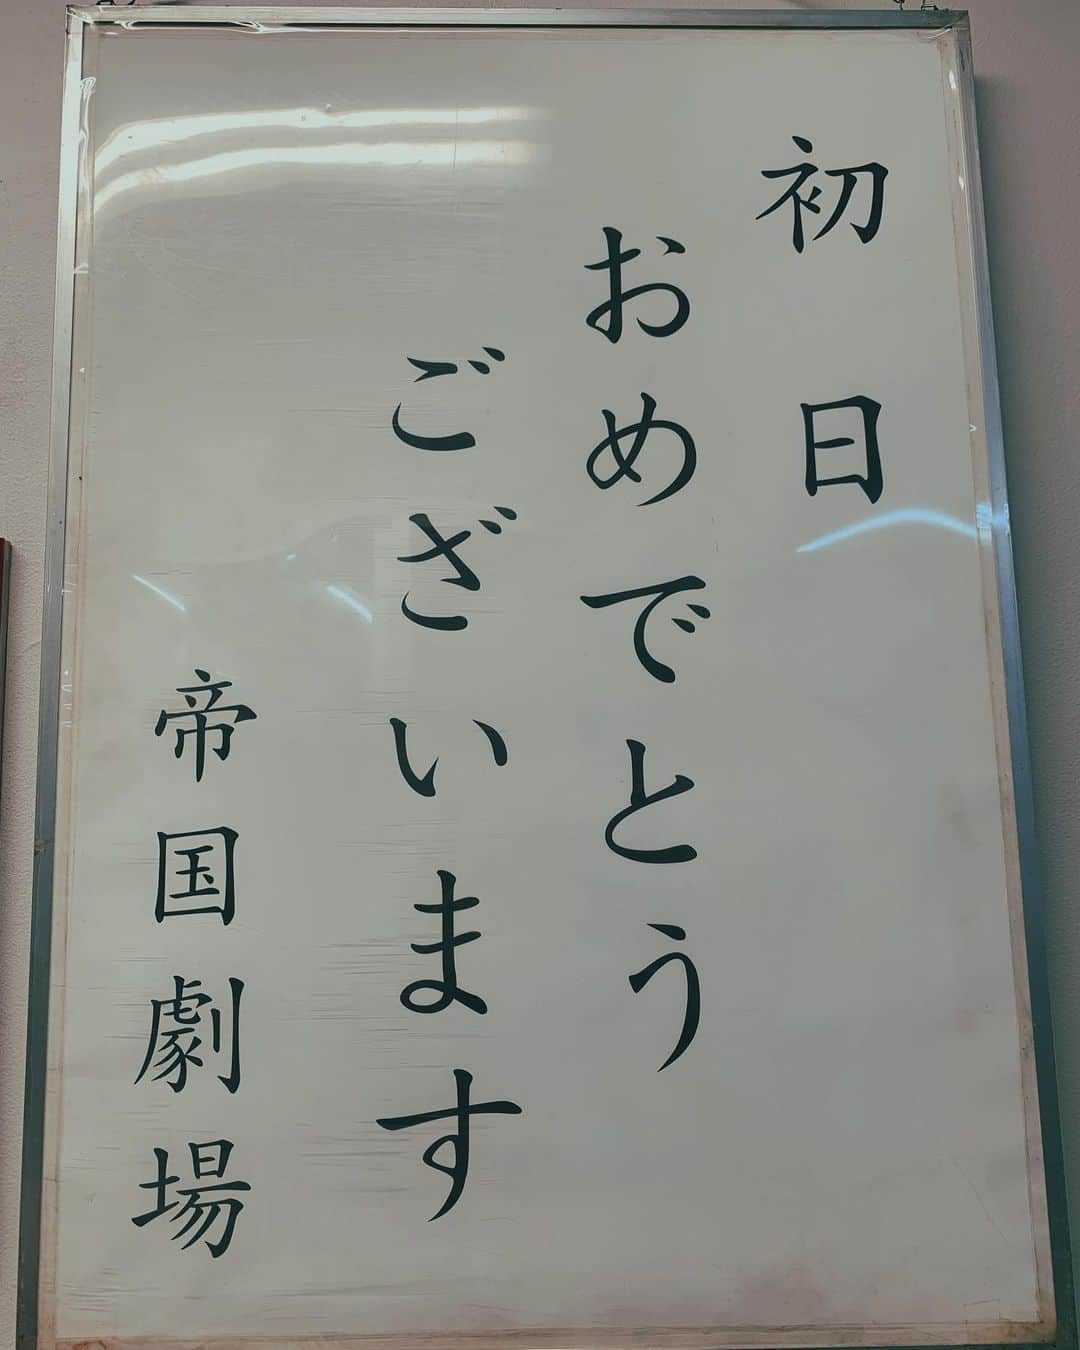 初日
おめでとう
ございます
帝国劇場